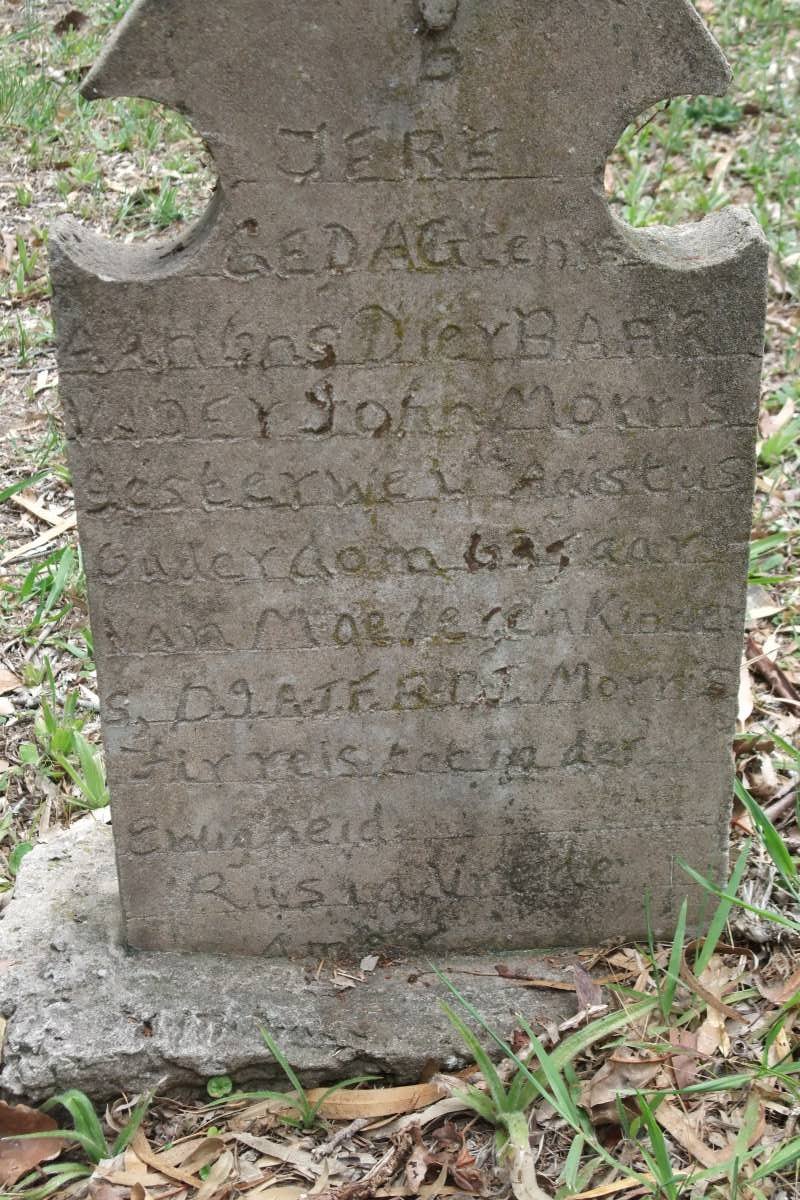 TERE
GEDAGtenis
Aan Ons DierBAAR
VADER John Morris
Gesterwe Agistus
Ouderdom Jaar
Van Moeder en Kinder
s, Morris
Fir reis tot in der
Ewigheid
Rus in Vrede